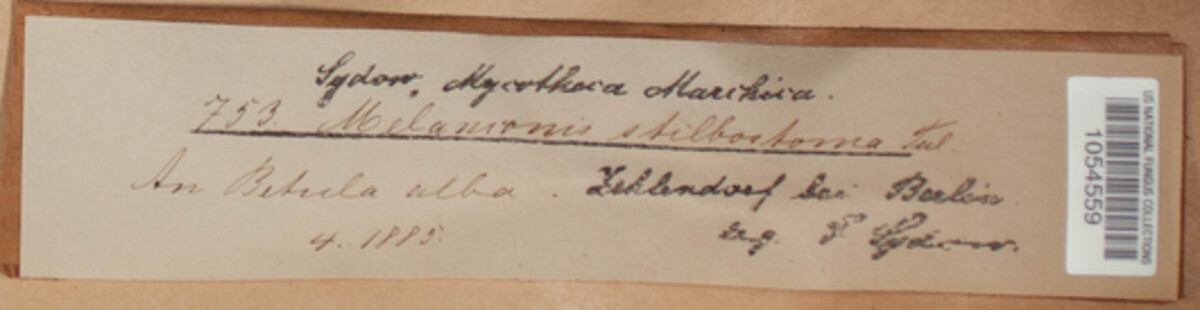 Sydow, Mycotheca Marchica.
753. Melanconis stilbostoma Tul.
An Betula alba. Zehlendorf bei Berlin
4. 1885. leg. P Sydow.
US NATIONAL FUNGUS COLLECTIONS
1054559